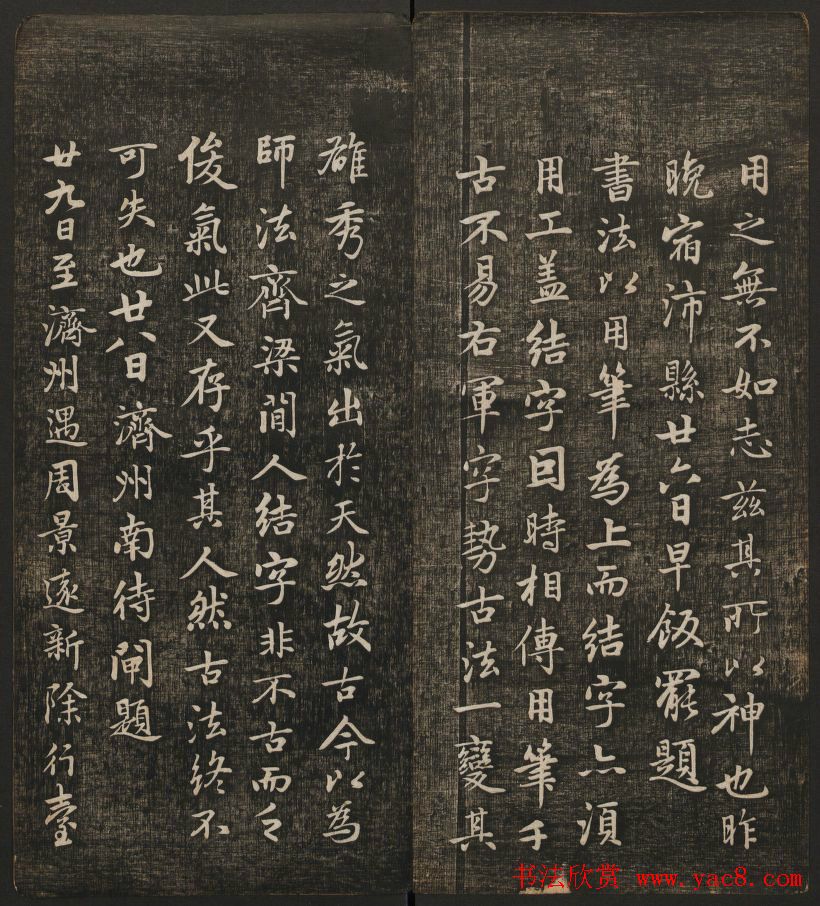 用之無不如志茲其所以神也昨
晚宿沛縣廿六日早飯罷題
書法以用筆為上而結字亦須
用工盖結字因時相傳用筆千
古不易右軍字勢古法一變其
雄秀之氣出於天然故古今以為
師法齊梁間人結字非不古而乏
俊氣此又存乎其人然古法終不
可失也廿八日濟州南待閘題
廿九日至濟州遇周景遠新除行臺
书法欣赏 www.yac8.com